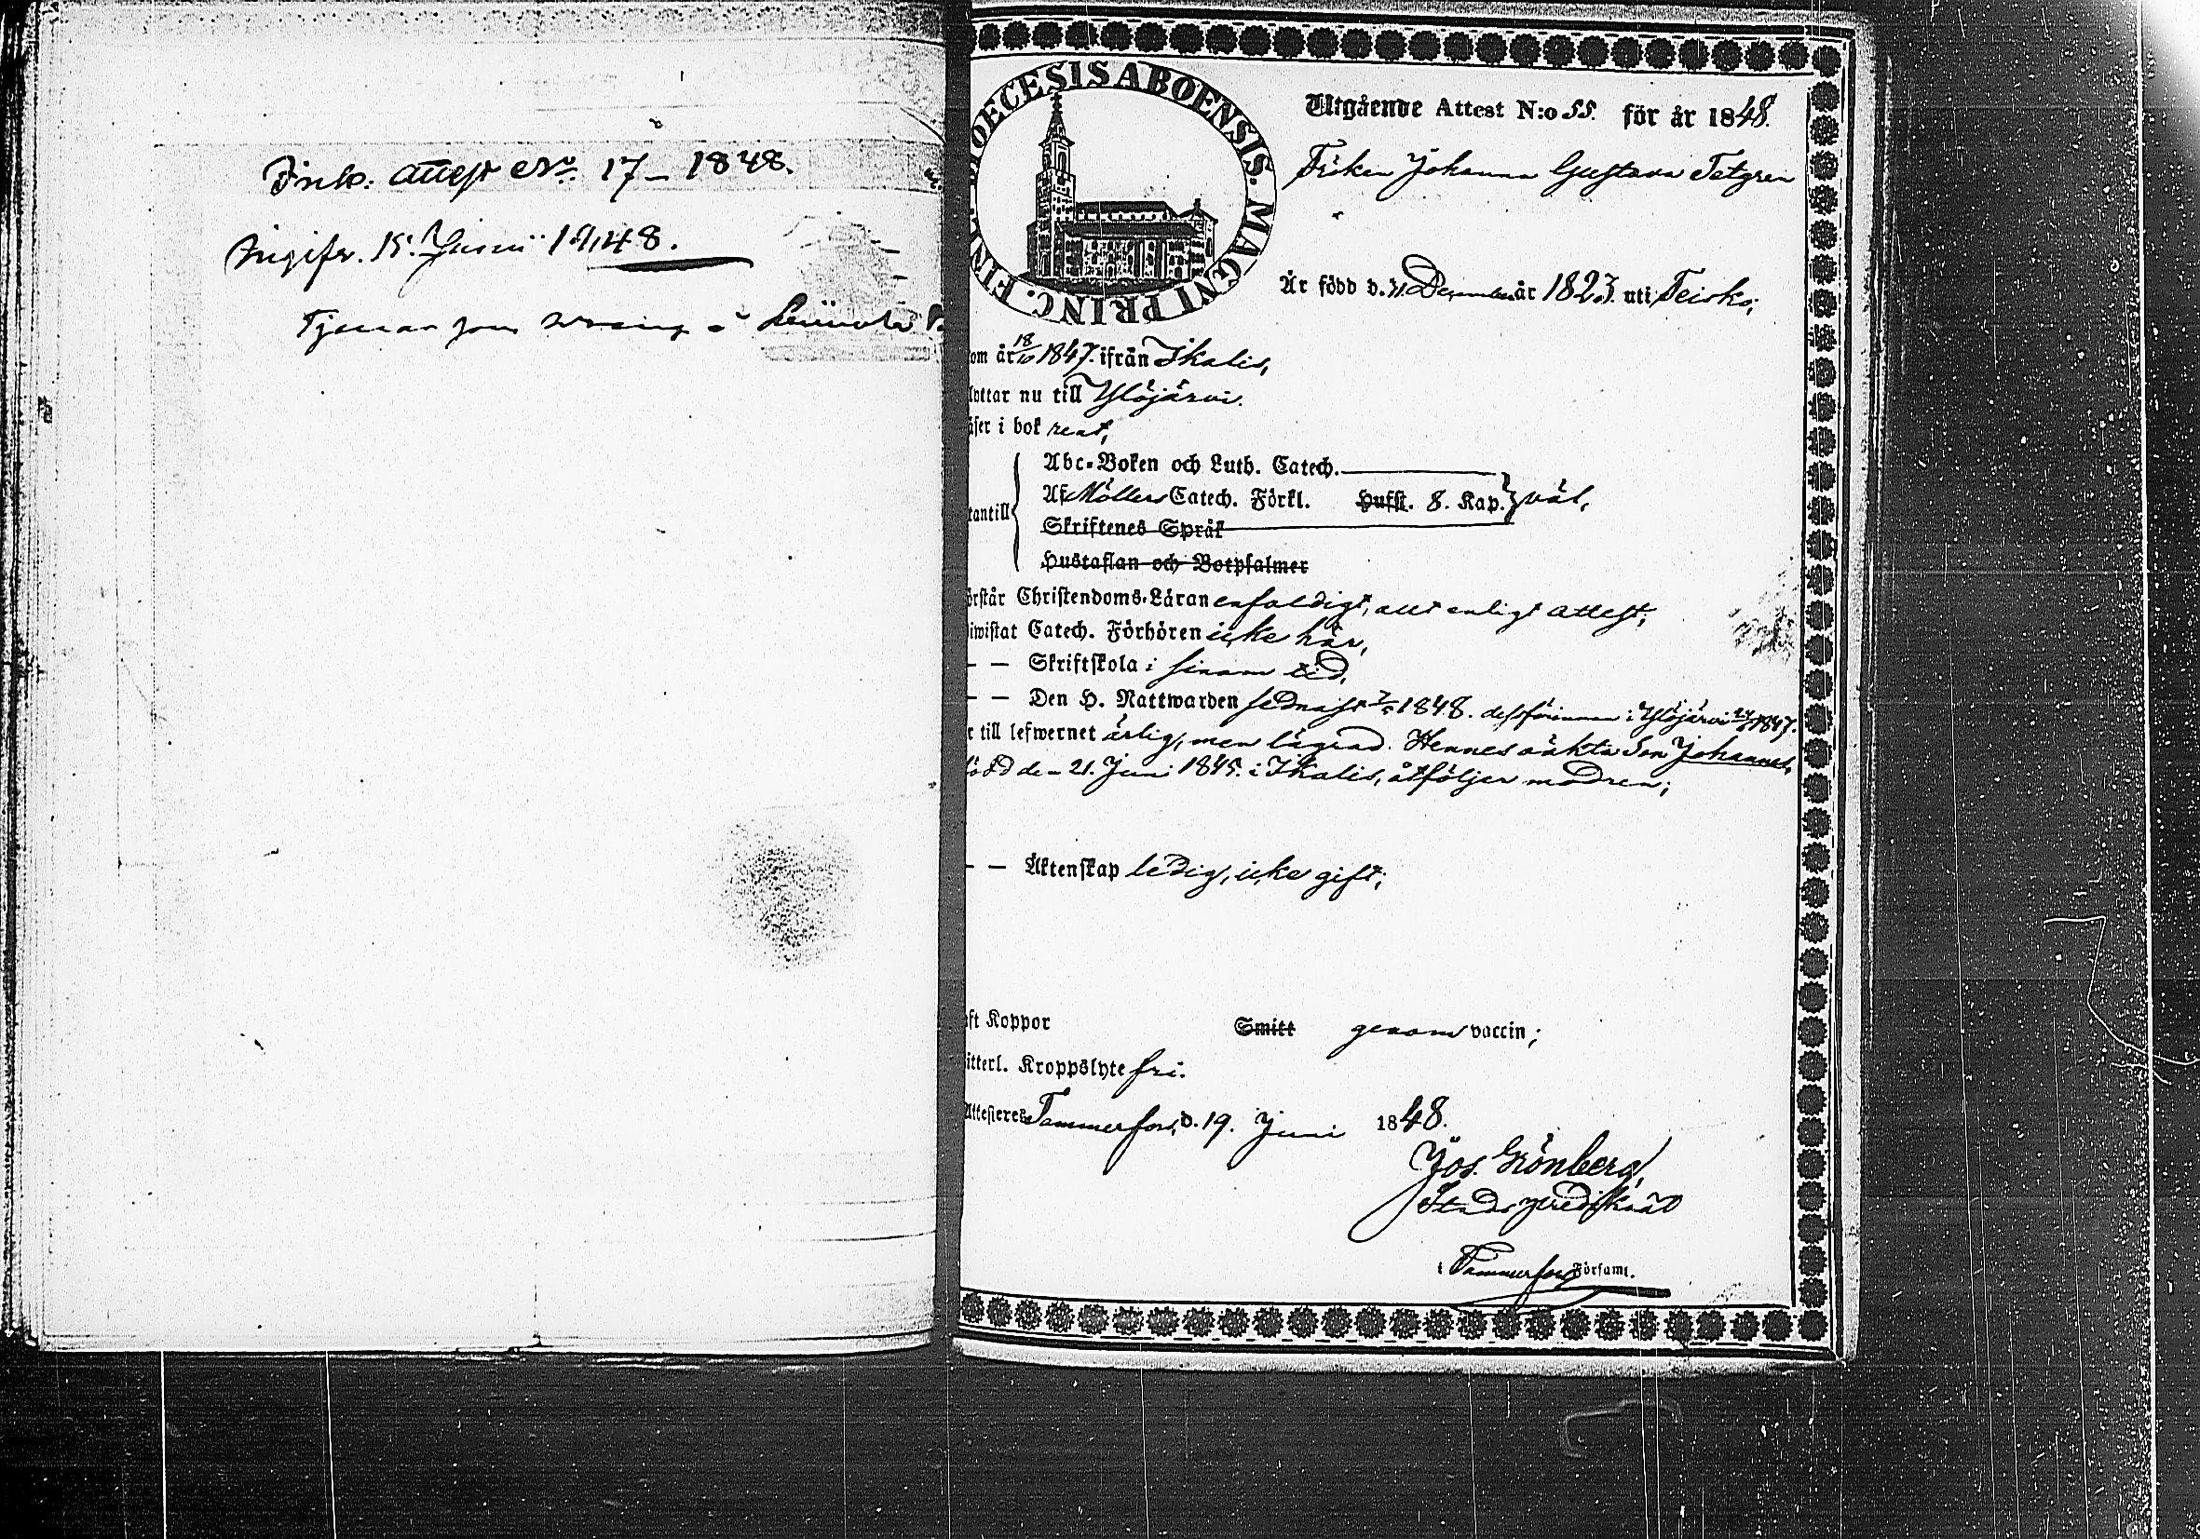 Ink. attest No. 17 – 1848.
Ingifv. 15. Junii 1848.
Tjenar som
DIOECESIS ABOENSIS. MAGNI PRINC. FINL.
Utgående Attest N:o 55. för år 1848.
Fröken Johanna Gustava Tetgren
Är född d. 31 December år 1823. uti Teisko,
om år 18/10 1847. ifrån Ikalis,
lyttar nu till Ylöjärvi.
äser i bok rent,
Abc-Boken och Luth. Catech.
tantill Af Möllers Catech. Förkl. Hufst. 8. Kap. väl,
Skriftenes Språk
Hustaflan och Botpsalmer
örstår Christendoms-Läran enfaldigt, allt enligt attest;
iwistat Catech. Förhören icke här,
– – Skriftskola i sinom tid,
– – Den H. Nattwarden sednast 1848. dessförinnan i Ylöjärvi 1847.
r till lefwernet ärlig, men lägrad. Hennes oäkta Son Johannes,
född den 21. Juni 1845. i Ikalis, åtföljer modren;
– – Äktenskap ledig, icke gift;
aft Koppor Smitt genom vaccin;
itterl. Kroppslyte fri.
Attesteres Tammerfors, d. 19. Juni 1848.
Jos. Grönberg,
Stadspredikant
i Tammerfors Församl.